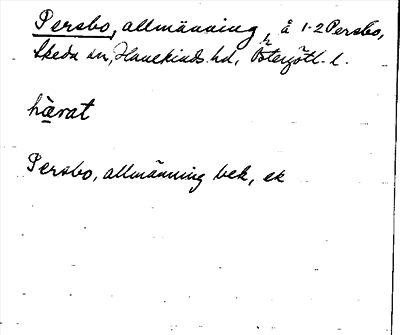 Persbo, allmänning, å 1-2 Persbo,
Skeda sn, Hanekinds hd, Östergötl. l.
hàrat
Persbo, allmänning bek, ek